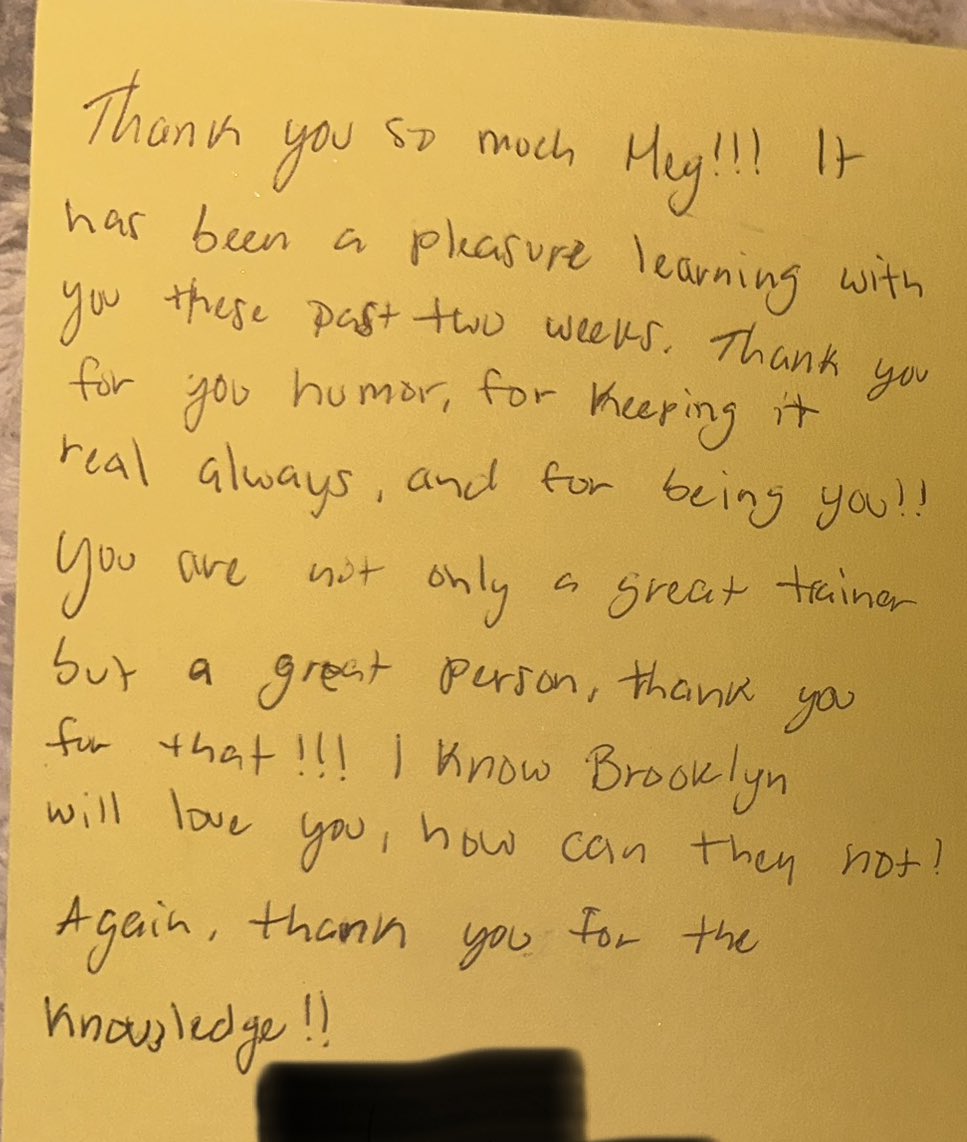 Thank you so much Meg!!! It
has been a pleasure learning with
you these past two weeks. Thank you
for you humor, for keeping it
real always, and for being you!!
You are not only a great trainer
but a great person, thank you
for that!!! I know Brooklyn
will love you, how can they not!
Again, thank you for the
knowledge!!